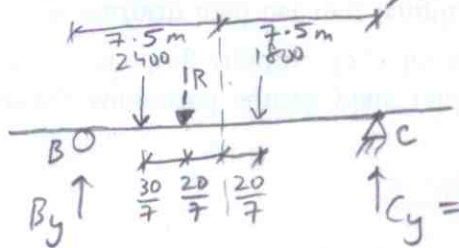 7.5m 7.5m
2400 R 1800
B C
30/7 20/7 20/7
By Cy =